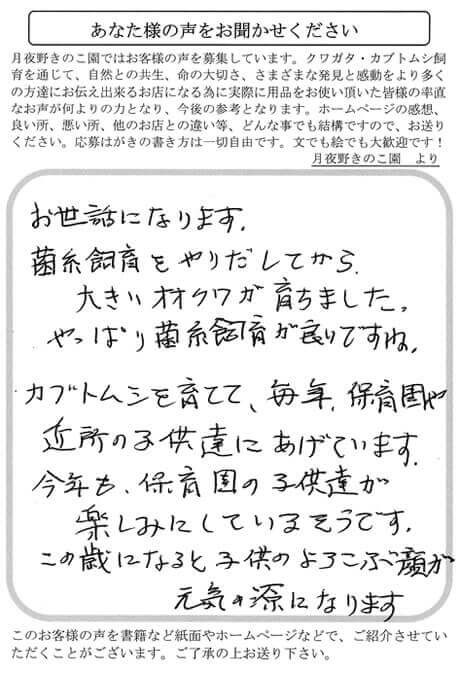 あなた様の声をお聞かせください
月夜野きのこ園ではお客様の声を募集しています。クワガタ・カブトムシ飼
育を通じて、自然との共生、命の大切さ、さまざまな発見と感動をより多く
の方達にお伝え出来るお店になる為に実際に用品をお使い頂いた皆様の率直
なお声が何よりの力となり、今後の参考となります。ホームページの感想、
良い所、悪い所、他のお店との違い等、どんな事でも結構ですので、お送り
ください。応募はがきの書き方は一切自由です。文でも絵でも大歓迎です！
月夜野きのこ園　より
お世話になります。
菌糸飼育をやりだしてから、
大きいオオクワが育ちました。
やっぱり菌糸飼育が良いですね。
カブトムシを育てて、毎年、保育園や
近所の子供達にあげています。
今年も、保育園の子供達が
楽しみにしているそうです。
この歳になると子供のよろこぶ顔が
元気の源になります
このお客様の声を書籍など紙面やホームページなどで、ご紹介させてい
ただくことがございます。ご了承の上お送り下さい。